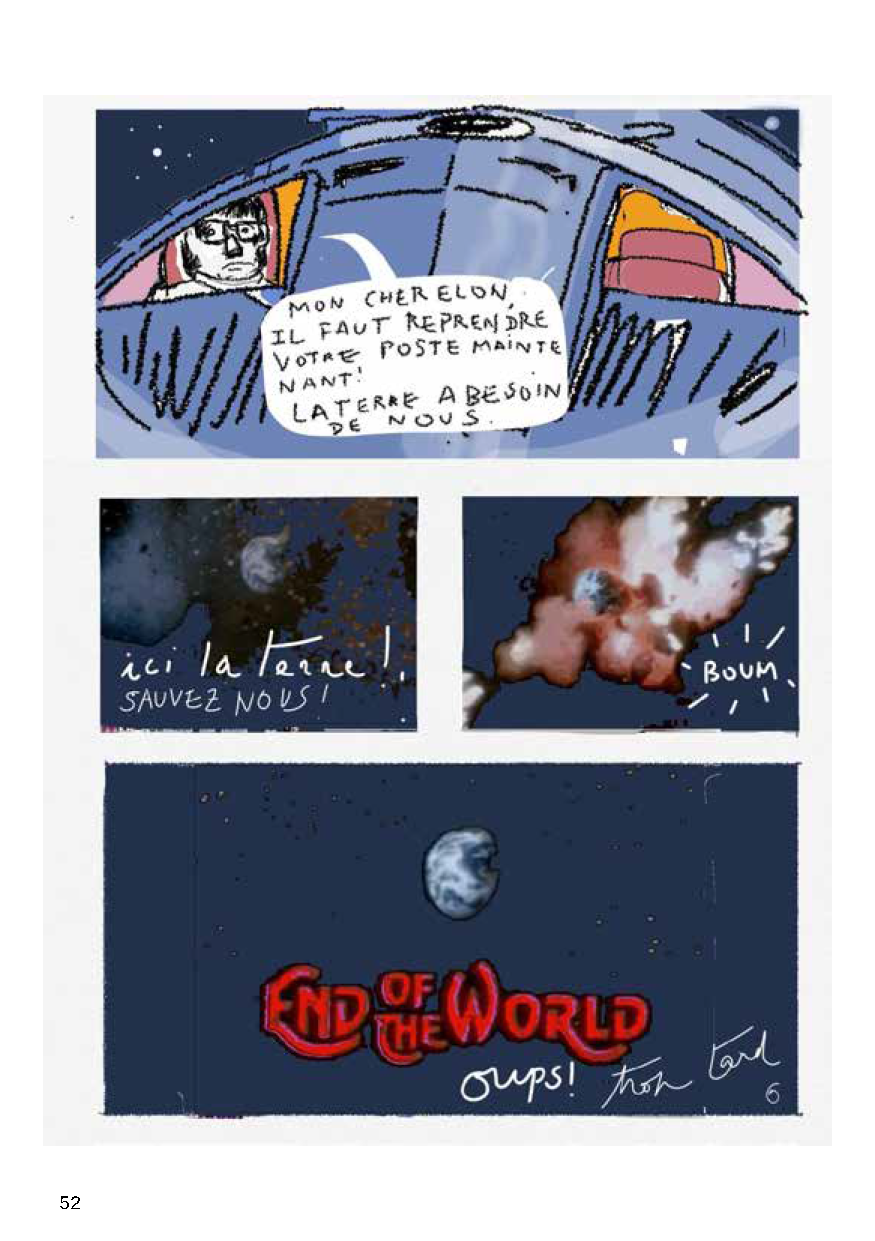 MON CHER ELON,
IL FAUT REPRENDRE
VOTRE POSTE MAINTE
NANT!
LA TERRE A BESOIN
DE NOUS.
ici la terre!
SAUVEZ NOUS!
BOUM
END OF THE WORLD
oups! trop tard
6
52